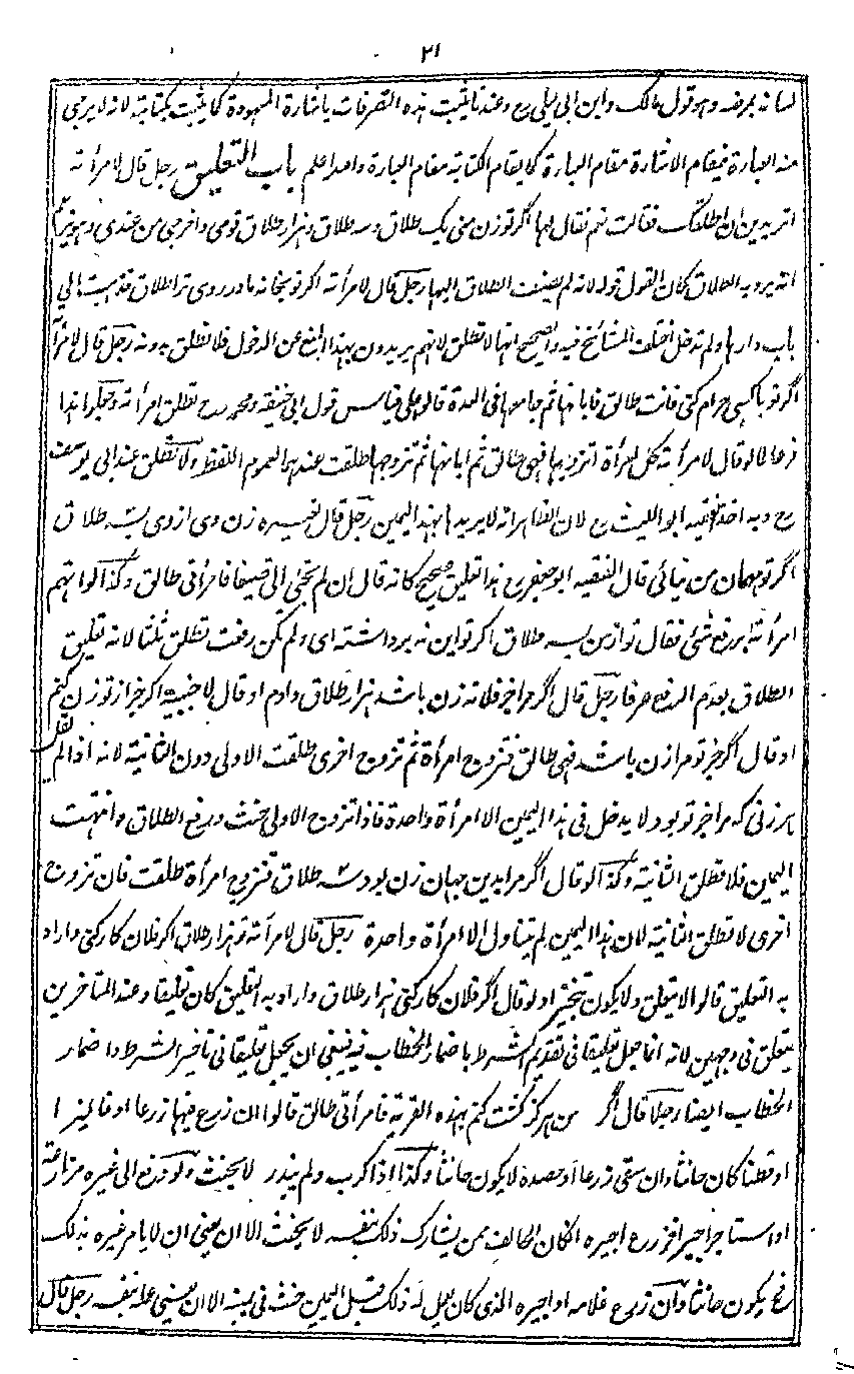 ٢١
لسانه بمرضه وهو قول مالك وابن ابى ليلى رح وعندنا يثبت هذه التصرفات باشارة المعهودة كما يثبت بكتابته لانه لا يرجى
منه العبارة فيقام الاشارة مقام العبارة كما يقام الكتابة مقام العبارة والله اعلم باب التعليق رجل قال لامرأته
اتريدين ان اطلقك فقالت نعم فقال لها اگر تو زن منى يك طلاق وسه طلاق وهزار طلاق قومى واخرجى من عندى وهو يزعم
انه لم يرد به الطلاق كان القول قوله لانه لم يضف الطلاق اليها رجل قال لامرأته اگر تو بخانه مادر روى ترا طلاق فذهبت الى
باب دارها ولم تدخل اختلف المشائخ فيه والصحيح انها لا تطلق لانهم يريدون بهذا المنع عن الدخول فلا تطلق بدونه رجل قال لامرأته
اگر تو باكسى حرام كنى فانت طالق فابانها ثم جامعها فى العدة قالوا على قياس قول ابى حنيفة ومحمد رح تطلق امرأته وجعلوا هذا
فرعا لما لو قال لامرأته كل امرأة اتزوجها فهى طالق ثم ابانها ثم تزوجها طلقت عندهما لعموم اللفظ ولا تطلق عند ابى يوسف
رح وبه اخذ الفقيه ابو الليث رح لان الظاهر انه لا يريدها بهذا اليمين رجل قال لغيره زن وى از وى بسه طلاق
اگر تو مهمان من نيائى قال الفقيه ابو جعفر رح هذا تعليق صحيح كانه قال ان لم تجئ الى ضيفا فامرأتى طالق وكذا لو اتهم
امرأته برفع شئ فقال تو از من بسه طلاق اگر تو اين نه برداشته اى ولم تكن رفعت تطلق ثلثا لانه تعليق
الطلاق بعدم الرفع عرفا رجل قال اگر مرا جز فلانه زن باشد هزار طلاق دادم او قال لاجنبية اگر جز از تو زن كنم
او قال اگر جز تو مرا زن باشد فهى طالق فتزوج امرأة ثم تزوج اخرى طلقت الاولى دون الثانية لانه اذا لم يقل
هر زنى كه مرا جز تو بود لا يدخل فى هذا اليمين الا امرأة واحدة فاذا تزوج الاولى حنث ووقع الطلاق وانتهت
اليمين فلا تطلق الثانية وكذا لو قال اگر مرا بدين جهان زن بود سه طلاق فتزوج امرأة طلقت فان تزوج
اخرى لا تطلق الثانية لان هذا اليمين لم يتناول الا امرأة واحدة رجل قال لامرأته تو هزار طلاق اگر فلان كار كنى واراد
به التعليق قالوا لا يتعلق ولا يكون تنجيزا ولو قال اگر فلان كار كنى هزار طلاق واراد به التعليق كان تعليقا وعند المتاخرين
يتعلق فى وجهين لانه انما جعل تعليقا فى تقويم الشرط باضمار الخطاب فيه فينبغى ان يجعل تعليقا فى تاخير الشرط واضمار
الخطاب ايضا رجل قال اگر من هرگز كشت كنم بهذه القرية فامرأتى طالق قالوا ان زرع فيها زرعا او فاليزا
او قطنا كان حانثا وان سقى زرعا او حصده لا يكون حانثا وكذا اذا كرب ولم يبذر لا يحنث ولو دفع الى غيره مزارعة
او استاجر اجيرا فزرع اجيره ان كان الحالف ممن يباشر ذلك بنفسه لا يحنث الا ان يعنى ان لا يامر غيره بذلك
فح يكون حانثا وان زرع غلامه او اجيره الذى كان يعمل له ذلك قبل اليمين حنث فى يمينه الا ان يعنى عمله بنفسه رجل قال